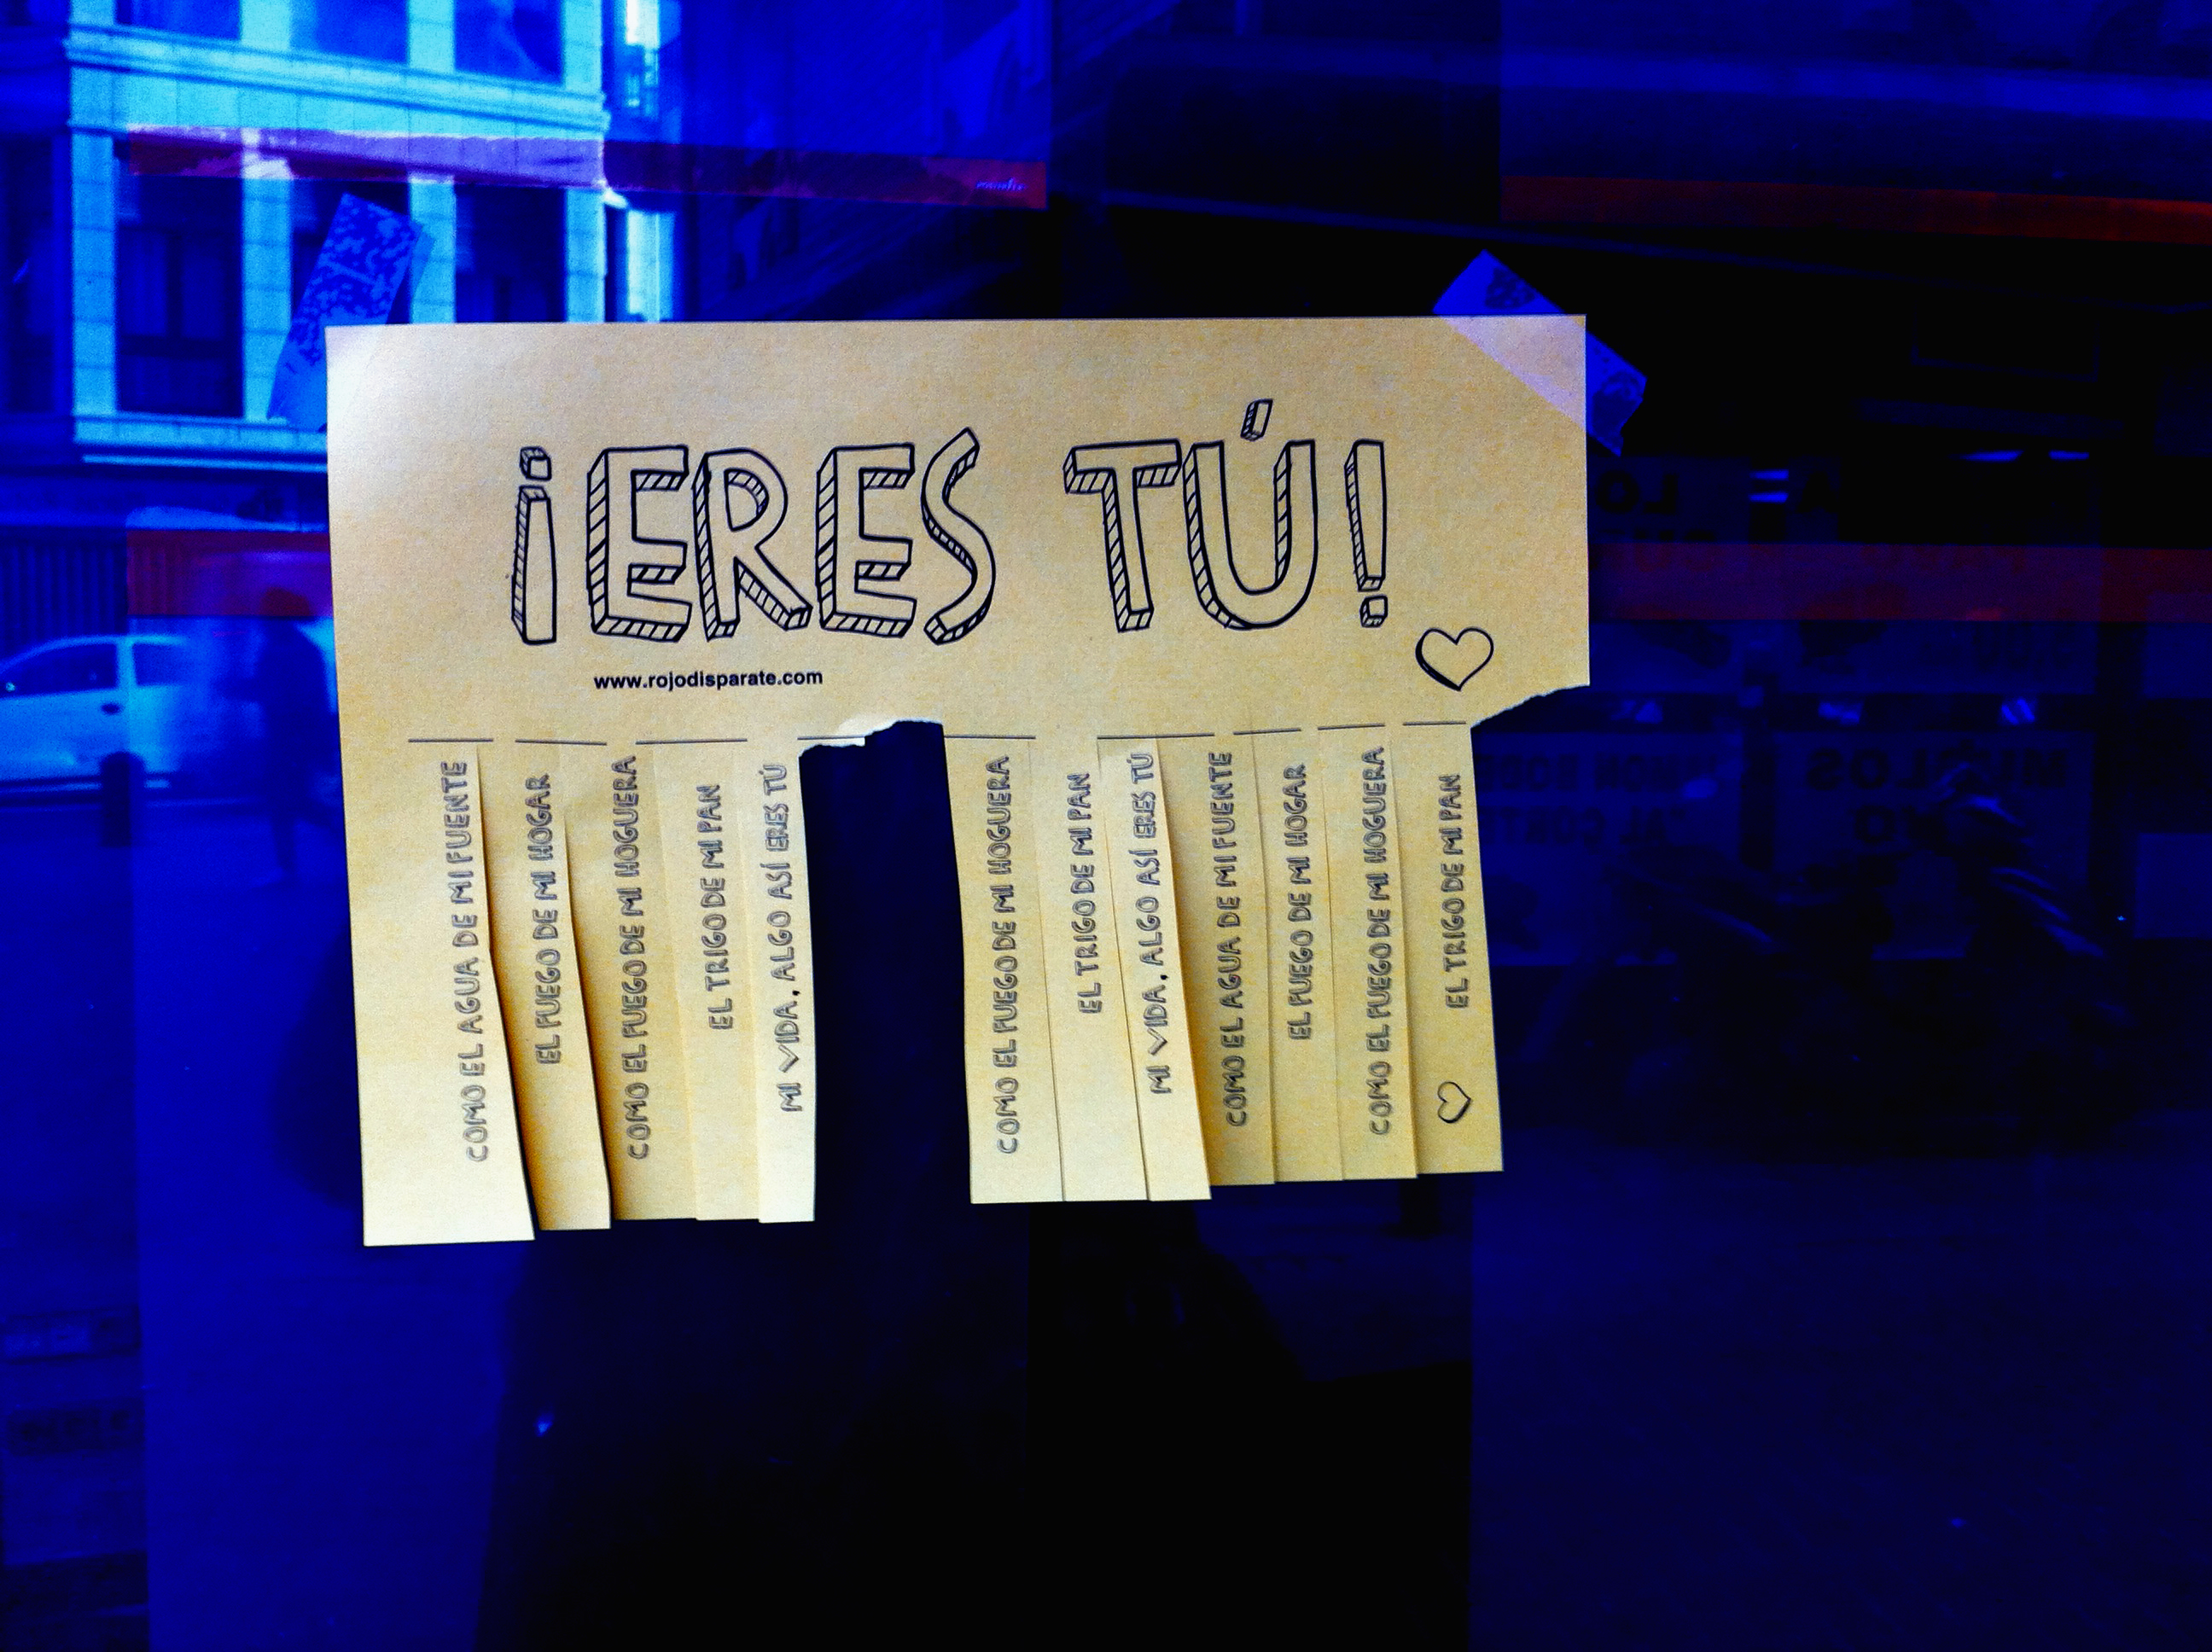 ¡ERES TÚ!
www.rojodisparate.com
COMO EL AGUA DE MI FUENTE
EL FUEGO DE MI HOGAR
COMO EL FUEGO DE MI HOGUERA
EL TRIGO DE MI PAN
MI VIDA, ALGO ASÍ ERES TÚ
COMO EL FUEGO DE MI HOGUERA
EL TRIGO DE MI PAN
MI VIDA, ALGO ASÍ ERES TÚ
COMO EL AGUA DE MI FUENTE
EL FUEGO DE MI HOGAR
COMO EL FUEGO DE MI HOGUERA
EL TRIGO DE MI PAN